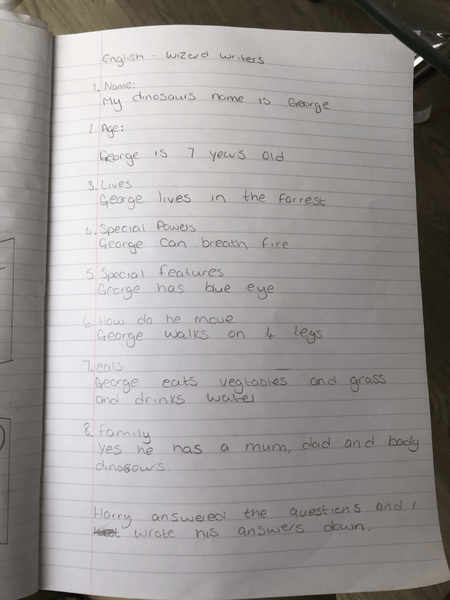 English - Wizard Writers
1. Name:
My dinosaurs name is George
2. Age:
George is 7 years old
3. Lives
George lives in the forrest
4. Special Powers
George can breath fire
5. Special features
George has blue eye
6. How do he move
George walks on 4 legs
7. eats
George eats vegtables and grass
and drinks water
8. Family
Yes he has a mum, dad and bady
dinosaurs.
Harry answered the questions and I
wrote his answers down.